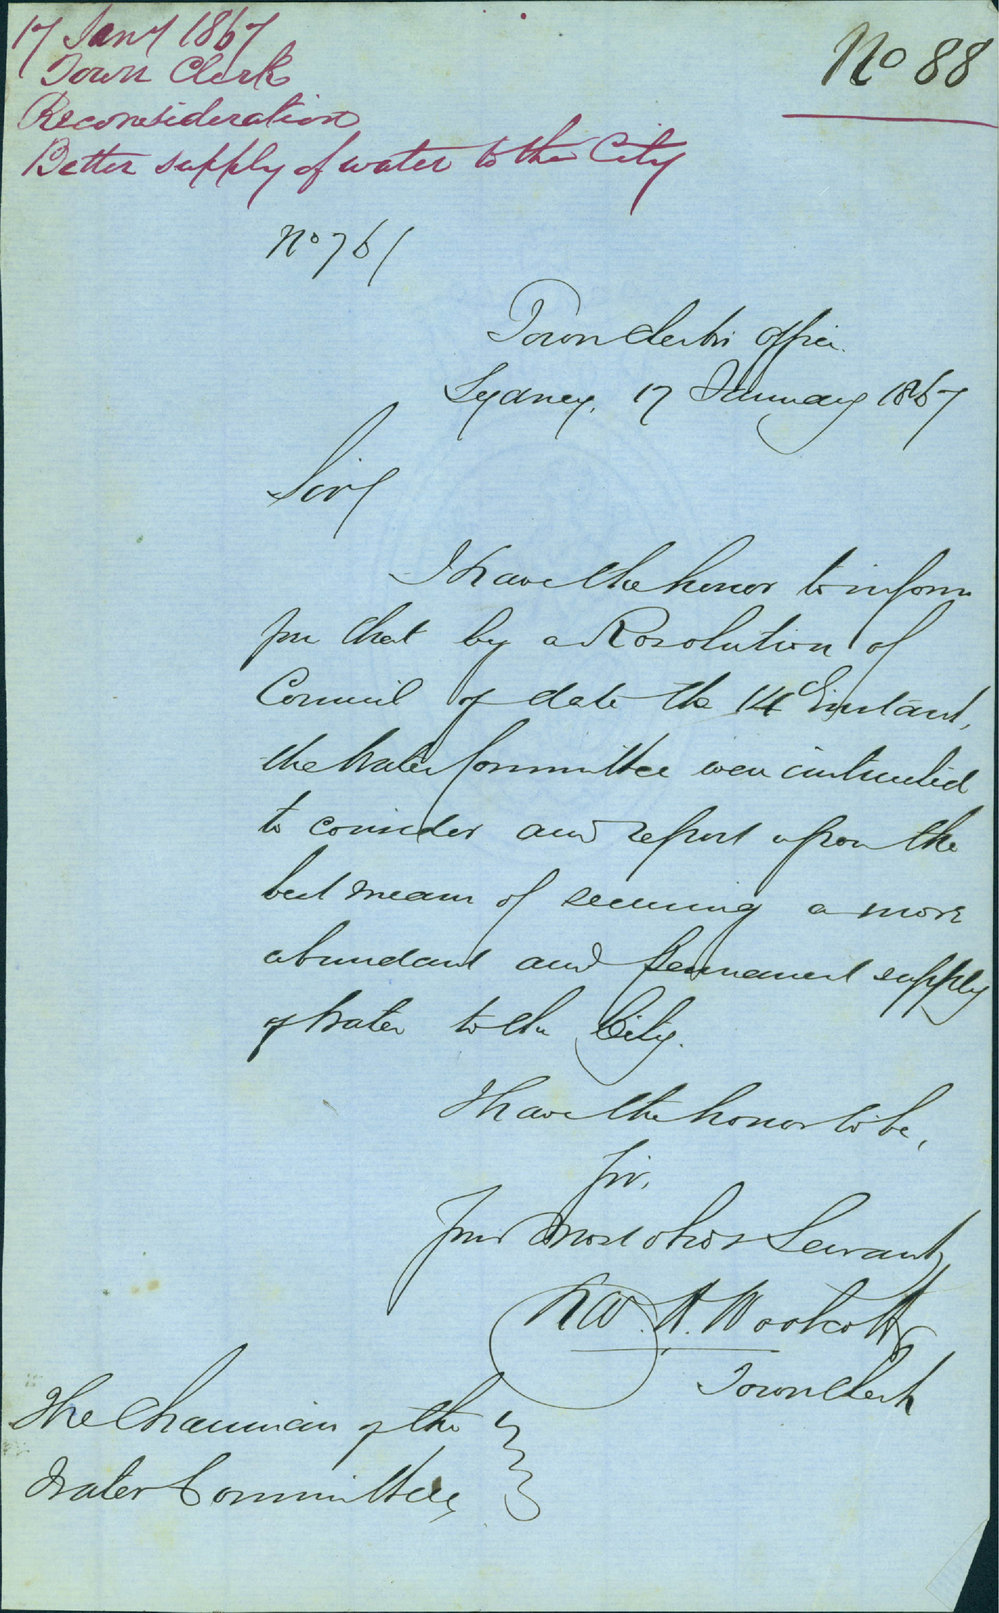 17 Jany 1867
Town Clerk
Reconsideration
Better supply of water to the City
No 88
No 761
Town Clerks Office
Sydney, 17 January 1867
Sir,
I have the honor to inform
you that by a Resolution of
Council of date the 14th Instant,
the Water Committee were instructed
to consider and report upon the
best means of securing a more
abundant and permanent supply
of Water to the City.
I have the honor to be,
Sir,
Your Most obdt Servant
A. Woolcott
Town Clerk
The Chairman of the
Water Committee